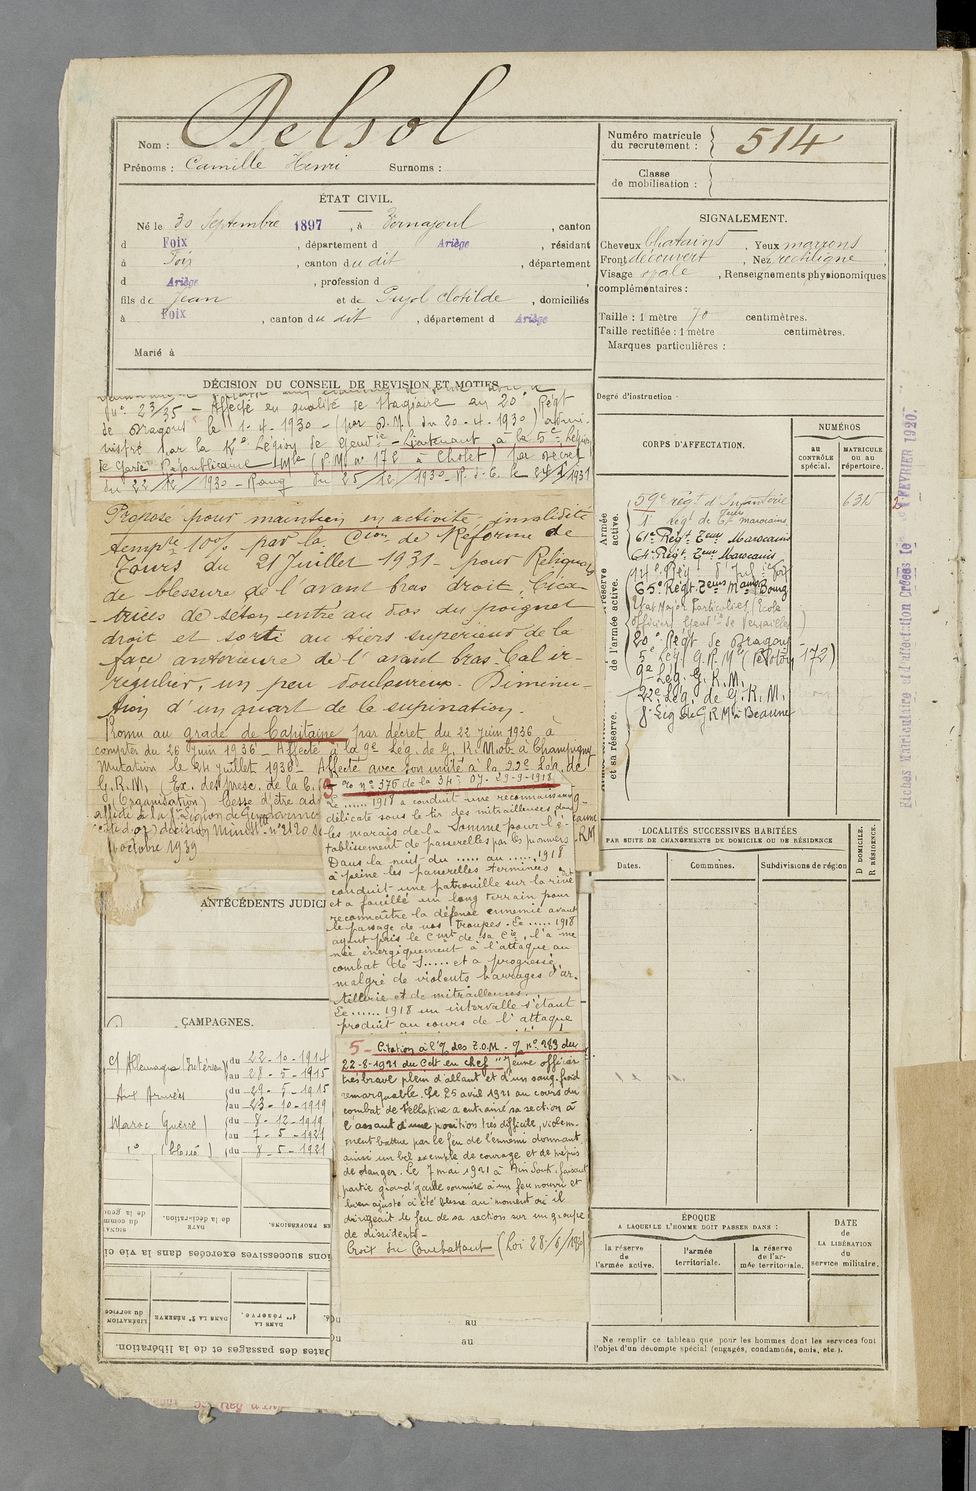 Delsol
Nom :
Prénoms : Camille Henri Surnoms :
Numéro matricule
du recrutement : 514
Classe
de mobilisation :
ÉTAT CIVIL.
Né le 30 Septembre 1897, à Vernajoul, canton
d Foix, département d Ariège, résidant
à Foix, canton du dit, département
d Ariège, profession d
fils de Jean et de Pujol Clotilde, domiciliés
à Foix, canton du dit, département d Ariège
Marié à
SIGNALEMENT.
Cheveux Chatains, Yeux marrons,
Front découvert, Nez rectiligne,
Visage ovale, Renseignements physionomiques
complémentaires :
Taille : 1 mètre 70 centimètres.
Taille rectifiée : 1 mètre centimètres.
Marques particulières :
Degré d'instruction
DÉCISION DU CONSEIL DE REVISION ET MOTIFS
n° 23/35 - Affecté en qualité de stagiaire au 20e Régt
de Dragons le 1-4-1930 - (par D.M. du 20-4-1930) admi-
nistré par la Légion de Gendie - Lieutenant, à la 5e Légion
de Garde Républicaine Mle (P.M. n° 172 à Cholet) par décret
du 22/12/1930 - Rang du 25/12/1930
Proposé pour maintien en activité, invalidité
tempre 10% par la Cion de Réforme de
Tours du 21 Juillet 1931 - pour Reliquats
de blessure de l'avant bras droit. Cica-
trices de séton entré au dos du poignet
droit et sorti au tiers supérieur de la
face antérieure de l'avant bras. Cal ir-
régulier, un peu douloureux. Diminu-
tion d'un quart de la supination.
Promu au grade de Capitaine par décret du 22 Juin 1936 à
compter du 26 Juin 1936 - Affecté à la 9e Lég. de G.R.Mob. à Champigny
Mutation le 24 juillet 1938 - Affecté avec son unité à la 22e Lég. de
G.R.M. (Ex. des presc. de la
(Organisation) Cesse d'être ad
affecté à la 8e Légion de
décision Minist. n° 2120
4 octobre 1939
n° 376 de la 34e 29-9-1918
Le ...... 1918 a conduit une reconnaissance
délicate sous le tir des mitrailleuses dans
les marais de la Somme pour l'é-
tablissement de passerelles par les pionniers
Dans la nuit du ..... au ..... 1918
à peine les passerelles terminées a
conduit une patrouille sur la rive
et a fouillé un long terrain pour
reconnaître la défense ennemie avant
le passage de nos troupes. Le ..... 1918
ayant pris le Cmt de sa Cie, l'a me
née énergiquement à l'attaque au
combat de S..... et a progressé
malgré de violents barrages d'ar-
tillerie et de mitrailleuses.
Le ...... 1918 un intervalle s'étant
produit au cours de l'attaque
5 - Citation à l'O. des T.O.M. - O. n° 283 du
22-8-1921 du Cdt en chef "Jeune officier
très brave plein d'allant et d'un sang-froid
remarquable. Le 25 avril 1921 au cours du
combat de a entraîné sa section à
l'assaut d'une position très difficile, violem-
ment battue par le feu de l'ennemi donnant
ainsi un bel exemple de courage et de mépris
de danger. Le 7 mai 1921 à Ain faisant
partie grand'garde soumise à un feu nourri et
bien ajusté a été blessé au moment où il
dirigeait le feu de sa section sur un groupe
de dissidents -
Croix du Combattant (Loi 28/6/1930)
ANTÉCÉDENTS JUDICI
CAMPAGNES.
Ct Allemagne (Intérieur) du 22-10-1914
au 28-5-1915
Aux Armées du 29-5-1915
au 23-10-1919
Maroc Guerre du 8-12-1919
au 7-5-1921
d° (blessé) du 8-5-1921
CORPS D'AFFECTATION.
NUMÉROS
au
CONTRÔLE
spécial.
MATRICULE
ou au
répertoire.
Armée
active.
59e régt d'Infanterie 6315
1er régt de Tirailleurs marocains
61e Régt Teurs Marocains
64e Régt Teurs Marocains
65e Régt Teurs Mains Bourg
Etat Major Particulier (Ecole
Officiers Gendie de Versailles)
20e Régt de Dragons
5e Lég. G.R.Me (Peloton 172)
9e Lég. G.R.M.
22e Lég. de G.R.M.
8e Lég de G R M à Beaune
et sa réserve.
Fiches Matriculaire et d'affectation Créées le FEVRIER 1920.
LOCALITÉS SUCCESSIVES HABITÉES
PAR SUITE DE CHANGEMENTS DE DOMICILE OU DE RÉSIDENCE
Dates.
Communes.
Subdivisions de région
D DOMICILE.
R RÉSIDENCE.
ÉPOQUE
A LAQUELLE L'HOMME DOIT PASSER DANS :
la réserve
de l'armée active.
l'armée
territoriale.
la réserve
de l'ar-
mée territoriale.
DATE
de
LA LIBÉRATION
du
service militaire.
Ne remplir ce tableau que pour les hommes dont les services font
l'objet d'un décompte spécial (engagés, condamnés, omis, etc.).
Du au
au
DATE
de la déclaration.
ions successives exercées dans la vie ci
DANS LA 2e RÉSERVE
DANS LA
1re réserve.
LIBÉRATION
du service
Dates des passages et de la libération.